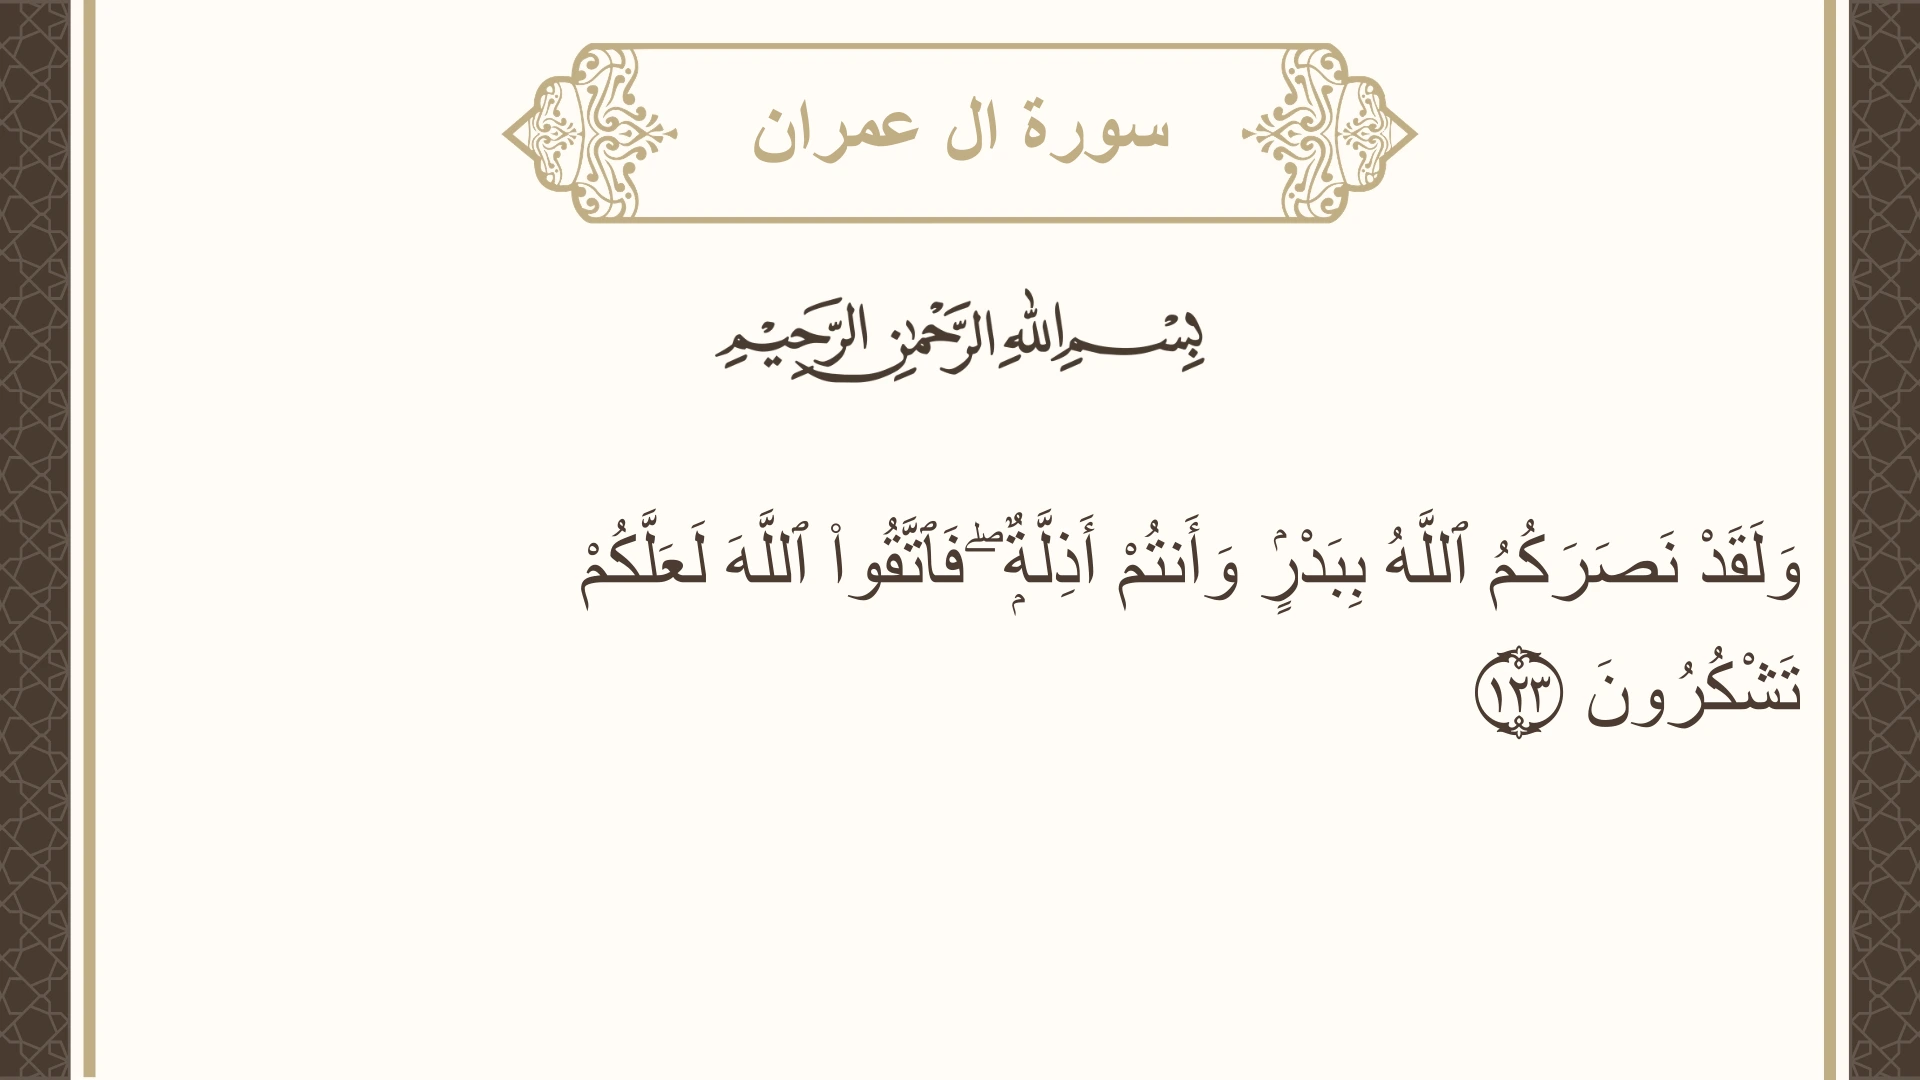 سورة ال عمران
بِسْمِ اللهِ الرَّحْمٰنِ الرَّحِيْمِ
وَلَقَدْ نَصَرَكُمُ ٱللَّهُ بِبَدْرٍۢ وَأَنتُمْ أَذِلَّةٌۭ ۖ فَٱتَّقُوا۟ ٱللَّهَ لَعَلَّكُمْ
تَشْكُرُونَ ١٢٣